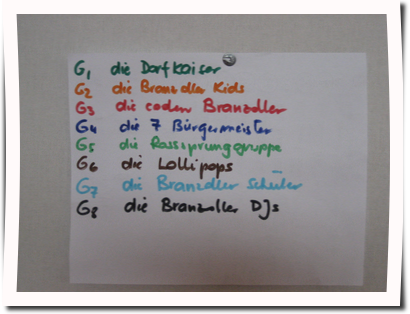 G1 die Dorfkaiser
G2 die Branzoller Kids
G3 die coolen Branzoller
G4 die 7 Bürgermeister
G5 die
G6 die Lollipops
G7 die Branzoller Schüler
G8 die Branzoller DJs